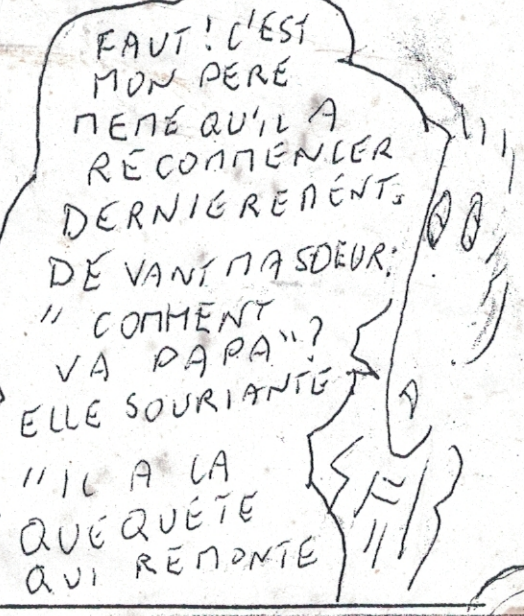 FAUT! C'EST
MON PERE
MEME QU'IL A
RECOMMENCER
DERNIEREMENT.
DEVANT MA SOEUR:
" COMMENT
VA PAPA"?
ELLE SOURIANTE
"IL A LA
QUEQUETE
QUI REMONTE